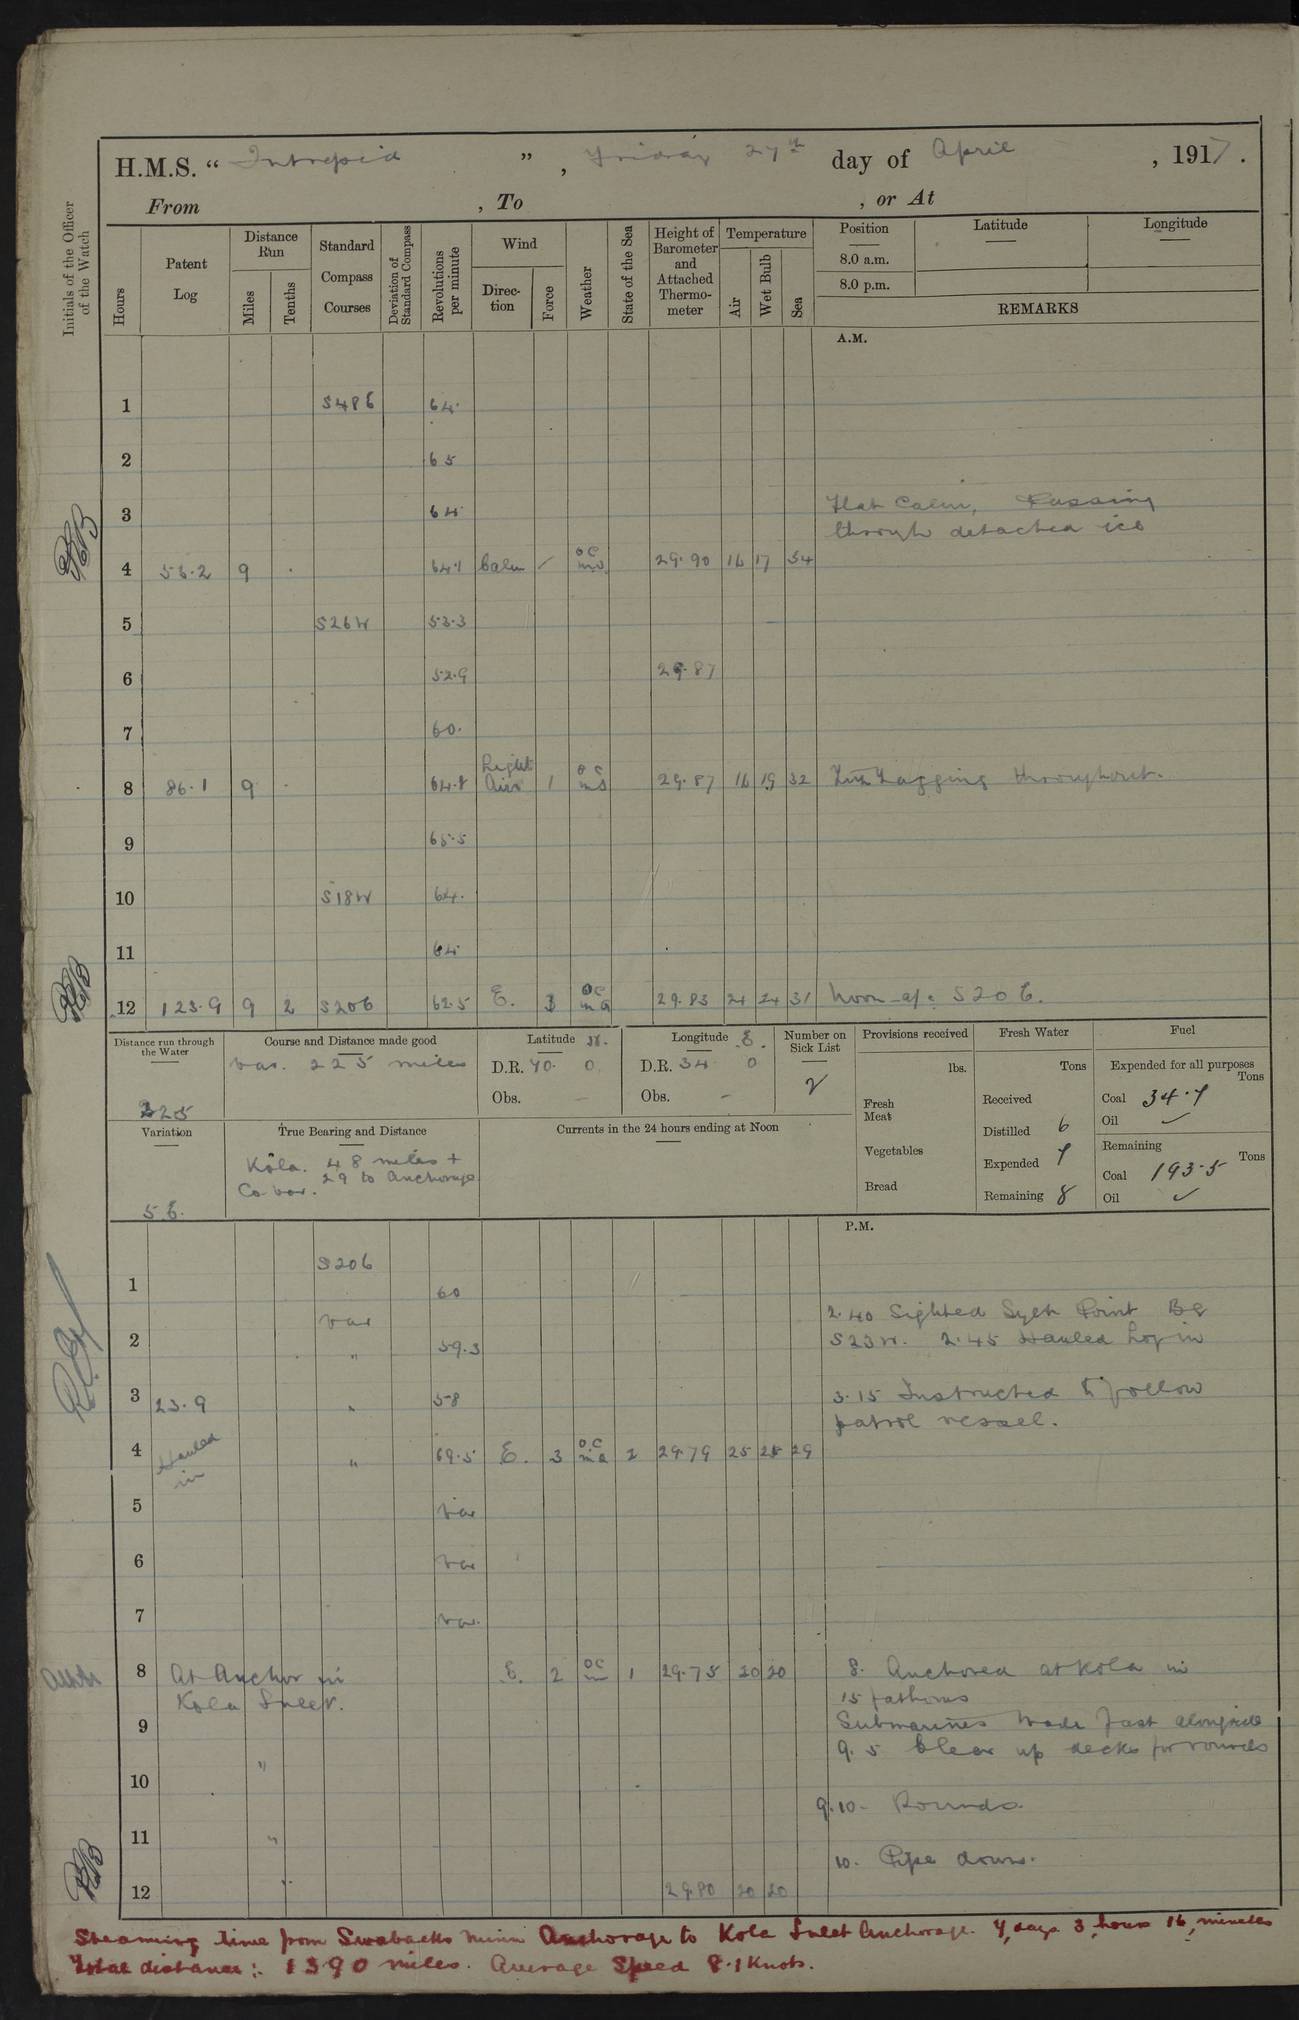 H.M.S. “ Intrepid ” , Friday 27th day of April , 1917 .
From , To , or At
Initials of the Officer of the Watch
Hours
Patent Log
Distance Run
Miles
Tenths
Standard Compass Courses
Deviation of Standard Compass
Revolutions per minute
Wind
Direction
Force
Weather
State of the Sea
Height of Barometer and Attached Thermometer
Temperature
Air
Wet Bulb
Sea
Position
8.0 a.m.
8.0 p.m.
Latitude
Longitude
REMARKS
A.M.
1 S48E 64.
2 65
3 64
Flat Calm, Passing
through detached ice
4 55.2 9 . 64.1 Calm 29.90 16 17 34
5 S26W 53.3
6 52.9 29.87
7 60.
8 86.1 9 . 64.8 Light Airs 1 29.87 16 19 32 throughout.
9 65.5
10 S18W 64.
11 64
12 123.9 9 2 S20E 62.5 E. 3 29.83 24 24 31 Noon a/c S20E.
Distance run through the Water
225
Course and Distance made good
Var. 225 miles
Latitude N.
D.R. 70. 0
Obs. –
Longitude E.
D.R. 34 0
Obs. –
Number on Sick List
2
Provisions received
lbs.
Fresh Meat
Vegetables
Bread
Fresh Water
Tons
Received
Distilled 6
Expended 7
Remaining 8
Fuel
Expended for all purposes
Tons
Coal 34.7
Oil ✓
Remaining
Tons
Coal 193.5
Oil ✓
Variation
5 E.
True Bearing and Distance
Kola. 48 miles +
Co var. 29 to anchorage
Currents in the 24 hours ending at Noon
P.M.
1 S20E 60
2 var 59.3
2.40 Sighted Syet Point Bg
S23W. 2.45 Hauled Log in
3 23.9 " 58
3.15 Instructed to follow
patrol vessel.
4 Hauled in " 69.5 E. 3 2 29.79 25 25 29
5 var
6 var
7 var.
8 At Anchor in E. 2 1 29.75 20 20 8. Anchored at Kola in
Kola Inlet. 15 fathoms
9 Submarines made fast alongside
9.5 Clear up decks for rounds
10 "
9.10. Rounds.
11 "
10. Pipe down.
12 " 29.80 20 20
Steaming time from Swarbacks Minn Anchorage to Kola Inlet Anchorage. 7 days 3 hours 16 minutes
Total distance: 1390 miles. Average Speed 8.1 Knots.